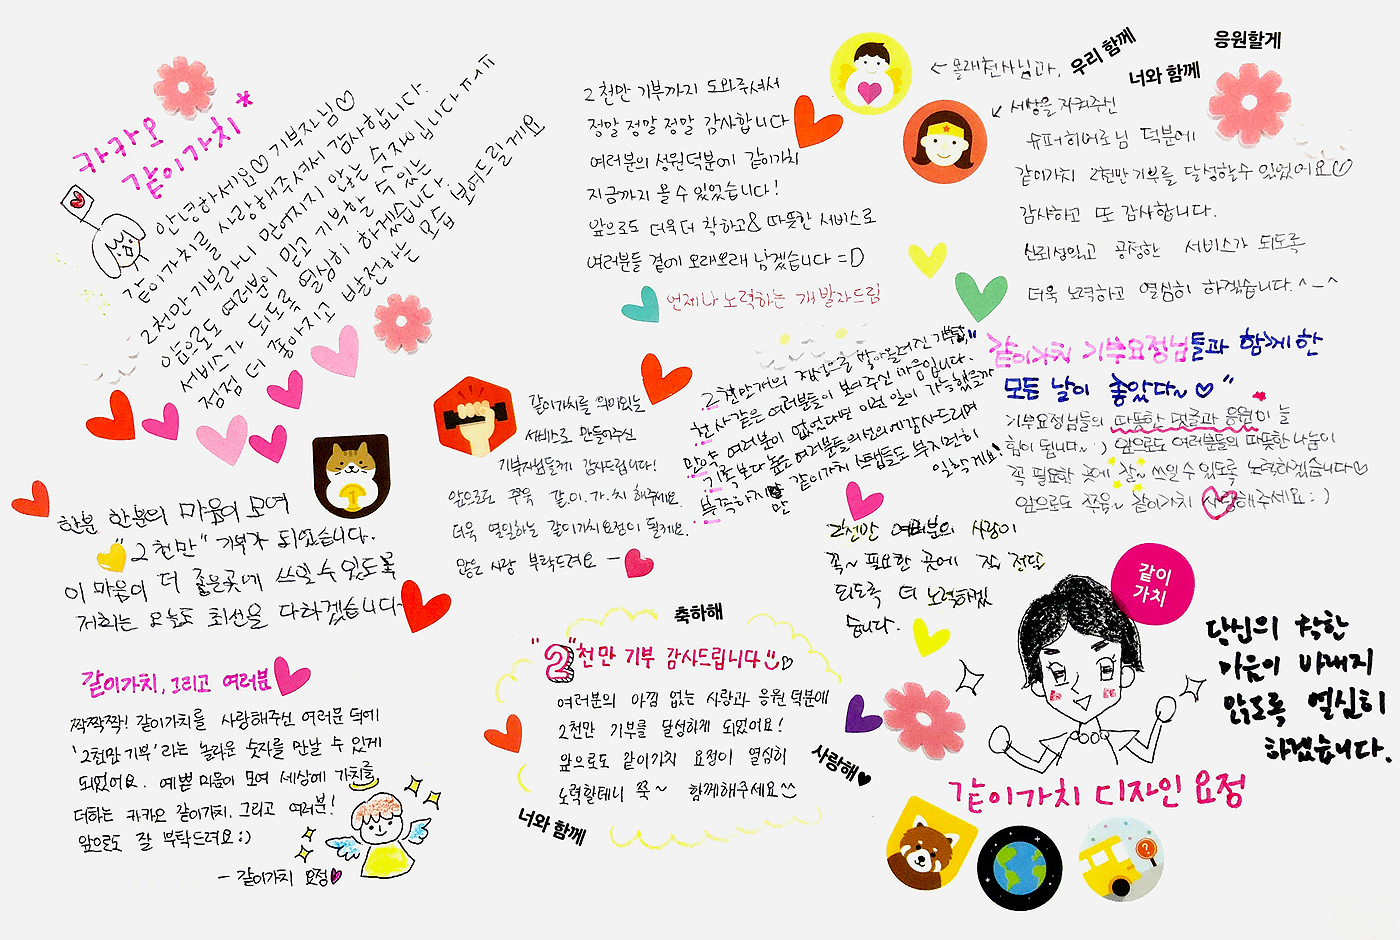 카카오
같이가치*
안녕하세요♡ 기부자님♡
같이가치를 사랑해주셔서 감사합니다.
2천만 기부라니 믿어지지 않는 숫자입니다 ㅠㅠ
앞으로도 여러분이 믿고 기부할 수 있는
서비스가 되도록 열심히 하겠습니다
점점 더 좋아지고 발전하는 모습 보여드릴게요
2천만 기부까지 도와주셔서
정말 정말 정말 감사합니다
여러분의 성원덕분에 같이가치
지금까지 올 수 있었습니다!
앞으로도 더욱더 착하고& 따뜻한 서비스로
여러분들 곁에 오래오래 남겠습니다 =D
언제나 노력하는 개발자드림
← 몰래천사님과,
우리 함께
너와 함께
응원할게
↙ 세상을 지켜주신
슈퍼히어로님 덕분에
같이가치 2천만 기부를 달성할수 있었어요♡
감사하고 또 감사합니다.
신뢰성있고 공정한 서비스가 되도록
더욱 노력하고 열심히 하겠습니다.^_^
같이가치를 의미있는
서비스로 만들어주신
기부자님들께 감사드립니다!
앞으로도 쭈욱 같.이.가.치 해주세요.
더욱 열일하는 같이가치요정이 될게요.
많은 사랑 부탁드려요 ー
2천만개의 진심으로 쌓아올려진 기부탑,"
천사같은 여러분들이 보여주신 마음입니다.
만약 여러분이 없었다면 이런 일이 가능했을까
기록보다 높은 여러분들의 선의에 감사드리며
부족하지만 같이가치 스탭들도 부지런히
일할게요!
같이가치 기부요정님들과 함께한
모든 날이 좋았다~♡"
기부요정님들의 따뜻한 댓글과 응원이 늘
힘이 됩니다~ :) 앞으로도 여러분들의 따뜻한 나눔이
꼭 필요한 곳에 잘~ 쓰일 수 있도록 노력하겠습니다♡
앞으로도 쭈욱~ 같이가치 사랑해주세요 :)
한분 한분의 마음이 모여
"2천만" 기부가 되었습니다.
이 마음이 더 좋은곳에 쓰일 수 있도록
저희는 오늘도 최선을 다하겠습니다~
2천만 여러분의 사랑이
꼭~ 필요한 곳에 잘 전달
되도록 더 노력하겠
습니다.
같이가치, 그리고 여러분
짝짝짝! 같이가치를 사랑해주신 여러분 덕에
'2천만 기부'라는 놀라운 숫자를 만날 수 있게
되었어요. 예쁜 마음이 모여 세상에 가치를
더하는 카카오 같이가치, 그리고 여러분!
앞으로도 잘 부탁드려요 :)
- 같이가치 요정♥
축하해
"2"천만 기부 감사드립니다
여러분의 아낌 없는 사랑과 응원 덕분에
2천만 기부를 달성하게 되었어요!
앞으로도 같이가치 요정이 열심히
노력할테니 쭉~ 함께해주세요^^
너와 함께
사랑해♥
같이
가치
당신의 착한
마음이 바래지
않도록 열심히
하겠습니다.
같이가치 디자인 요정